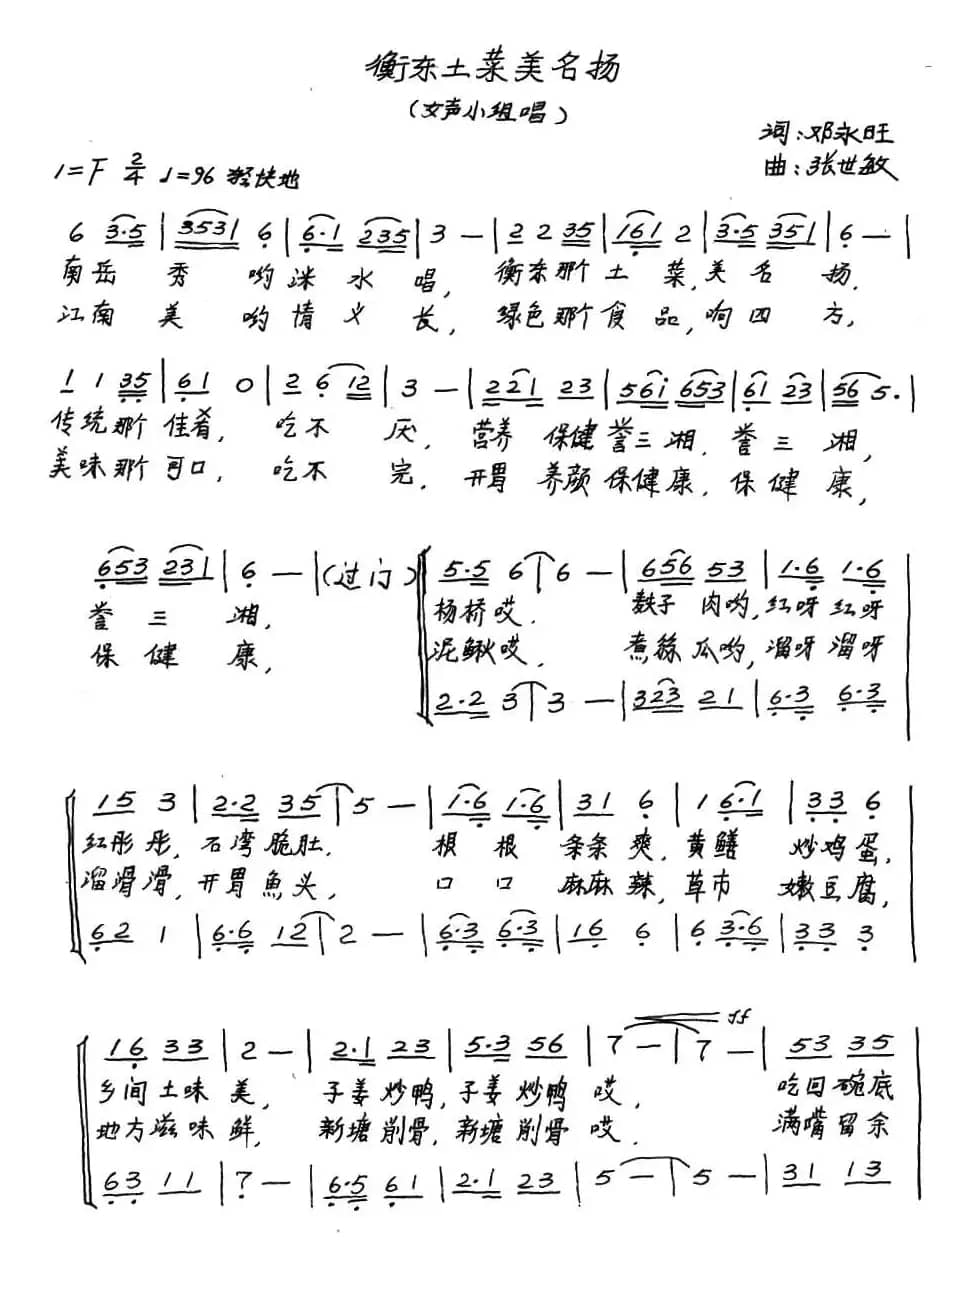 衡东土菜美名扬
（女声小组唱）
词：邓永旺
曲：张世敏
1=F 2/4 ♩=96 轻快地
6 3·5 | 3531 6 | 6·1 235 | 3 — | 2 2 35 | 161 2 | 3·5 351 | 6 — |
南岳 秀 哟 洣 水 唱， 衡东那个 土 菜，美 名 扬，
江南 美 哟 情 义 长， 绿色那个 食 品，响 四 方，
1 1 35 | 61 0 | 2 6 12 | 3 — | 221 23 | 56i 653 | 61 23 | 56 5. |
传统那个 佳肴， 吃不 厌， 营养 保健 誉三湘，誉 三 湘，
美味那个 可口， 吃不 完， 开胃 养颜 保健康，保 健 康，
653 231 | 6 — | （过门） 5·5 6 | 6 — | 656 53 | 1·6 1·6
誉 三 湘， 杨桥哎， 麸子 肉哟，红呀 红呀
保 健 康， 泥鳅哎， 煮丝瓜哟，溜呀 溜呀
2·2 3 | 3 — | 323 21 | 6·3 6·3
15 3 | 2·2 35 | 5 — | 1·6 1·6 | 31 6 | 1 6·1 | 33 6
红彤 彤，石湾 脆肚， 根 根 条条 爽，黄鳝 炒鸡 蛋，
溜滑滑，开胃 魚头， 口 口 麻麻 辣，草市 嫩豆 腐，
62 1 | 6·6 12 | 2 — | 6·3 6·3 | 16 6 | 6 3·6 | 33 3
ff
16 33 | 2 — | 2·1 23 | 5·3 56 | 7 — | 7 — | 53 35
乡间 土味 美， 子姜 炒鸭，子姜 炒鸭 哎， 吃回 碗底
地方滋味 鲜， 新塘 削骨，新塘 削骨 哎， 满嘴 留余
63 11 | 7 — | 6·5 61 | 2·1 23 | 5 — | 5 — | 31 13